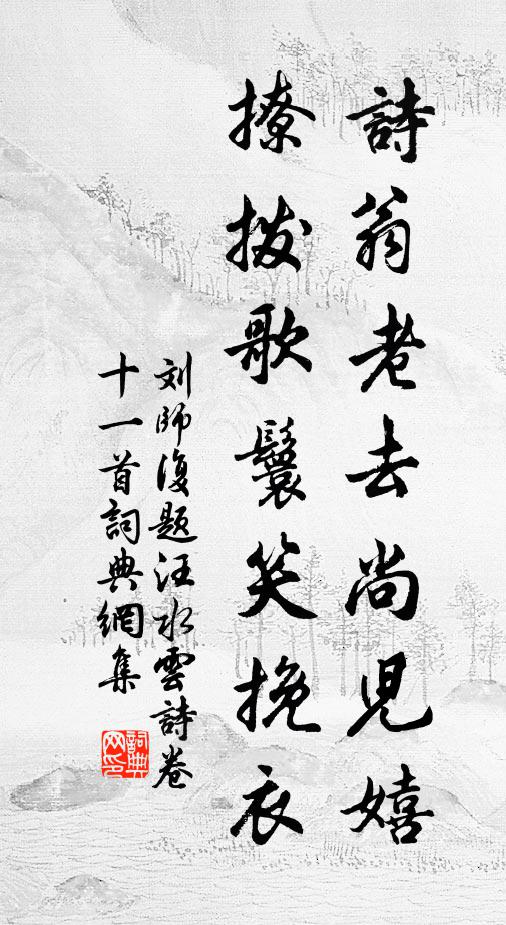 詩翁老去尚兒嬉
撩拨歌鬟笑挽衣
刘師復题汪水雲詩卷
十一首詞典網集
詞典网印